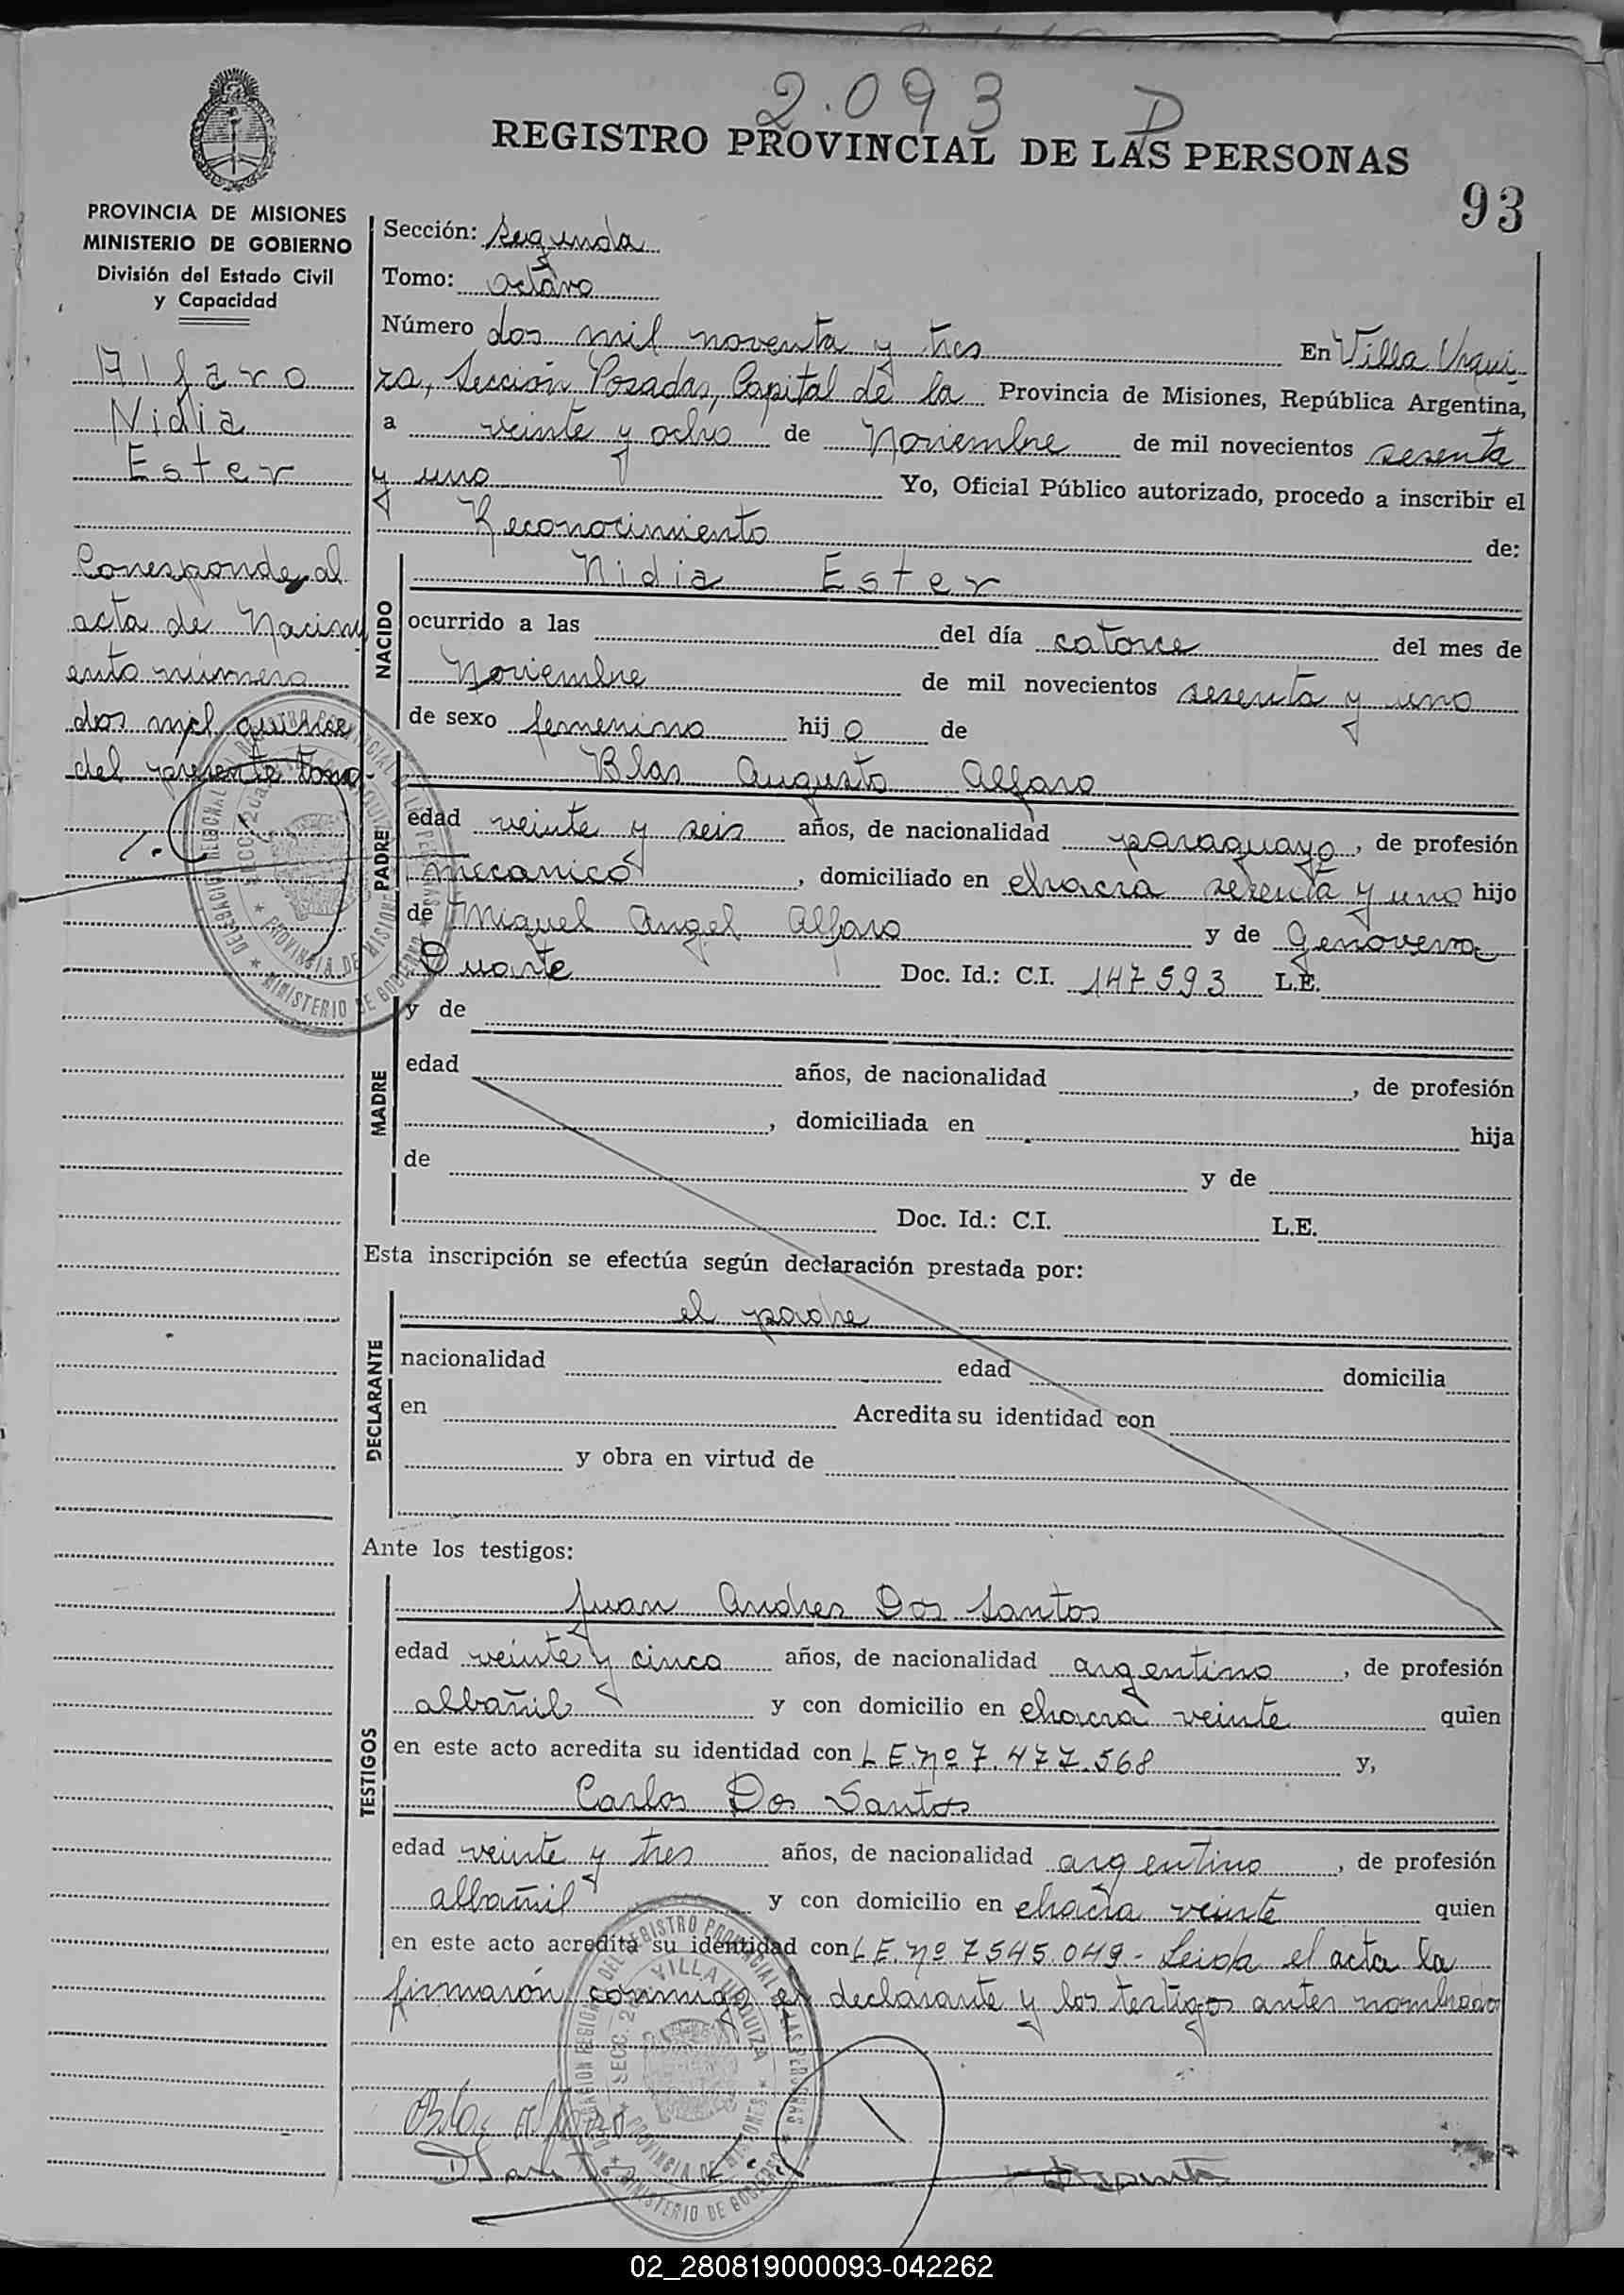 2.093 D
REGISTRO PROVINCIAL DE LAS PERSONAS
93
PROVINCIA DE MISIONES
MINISTERIO DE GOBIERNO
División del Estado Civil
y Capacidad
Alfaro
Nidia
Ester
Corresponde al
acta de Nacimi
ento número
dos mil quince
del presente tomo
Sección: Segunda
Tomo: octavo
Número dos mil noventa y tres En Villa Urqui
za, Sección Posadas, Capital de la Provincia de Misiones, República Argentina,
a veinte y ocho de Noviembre de mil novecientos sesenta
y uno Yo, Oficial Público autorizado, procedo a inscribir el
Reconocimiento de:
NACIDO
Nidia Ester
ocurrido a las del día catorce del mes de
Noviembre de mil novecientos sesenta y uno
de sexo femenino hij o de
PADRE
Blas Augusto Alfaro
edad veinte y seis años, de nacionalidad paraguayo, de profesión
mecanico, domiciliado en chacra sesenta y uno hijo
de Miguel Angel Alfaro y de Genoveva
Duarte Doc. Id.: C.I. 147593 L.E.
MADRE
y de
edad años, de nacionalidad , de profesión
, domiciliada en hija
de y de
Doc. Id.: C.I. L.E.
Esta inscripción se efectúa según declaración prestada por:
DECLARANTE
el padre
nacionalidad edad domicilia
en Acredita su identidad con
y obra en virtud de
Ante los testigos:
TESTIGOS
Juan Andres Dos Santos
edad veinte y cinco años, de nacionalidad argentino, de profesión
albañil y con domicilio en chacra veinte quien
en este acto acredita su identidad con L.E. nº 7.477.568 y,
Carlos Dos Santos
edad veinte y tres años, de nacionalidad argentino, de profesión
albañil y con domicilio en chacra veinte quien
en este acto acredita su identidad con L.E. nº 7545.049 - Leida el acta la
firmarón conmigo el declarante y los testigos antes nombrados
Blas Alfaro
02_280819000093-042262